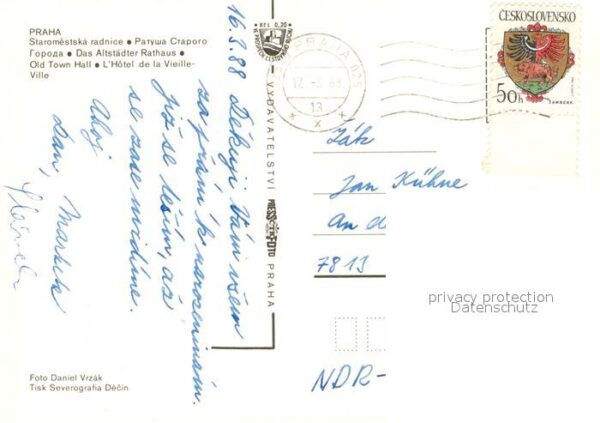 PRAHA
Staroměstská radnice • Ратуша Старого
Города • Das Altstädter Rathaus •
Old Town Hall • L'Hôtel de la Vieille-
Ville
16.3.88 Děkuji Vám všem
za přání k narozeninám.
Již se těším, až
se zase uvidíme.
Ahoj
Dan, Markéta
Kčs 0,20
VYDAVATELSTVÍ PRESSFOTO PRAHA
PRAHA 025
13
ČESKOSLOVENSKO
50h
ŽAMBERK
Žák
Jan Kühne
An d
7813
privacy protection
Datenschutz
NDR-
Foto Daniel Vrzák
Tisk Severografia Děčín